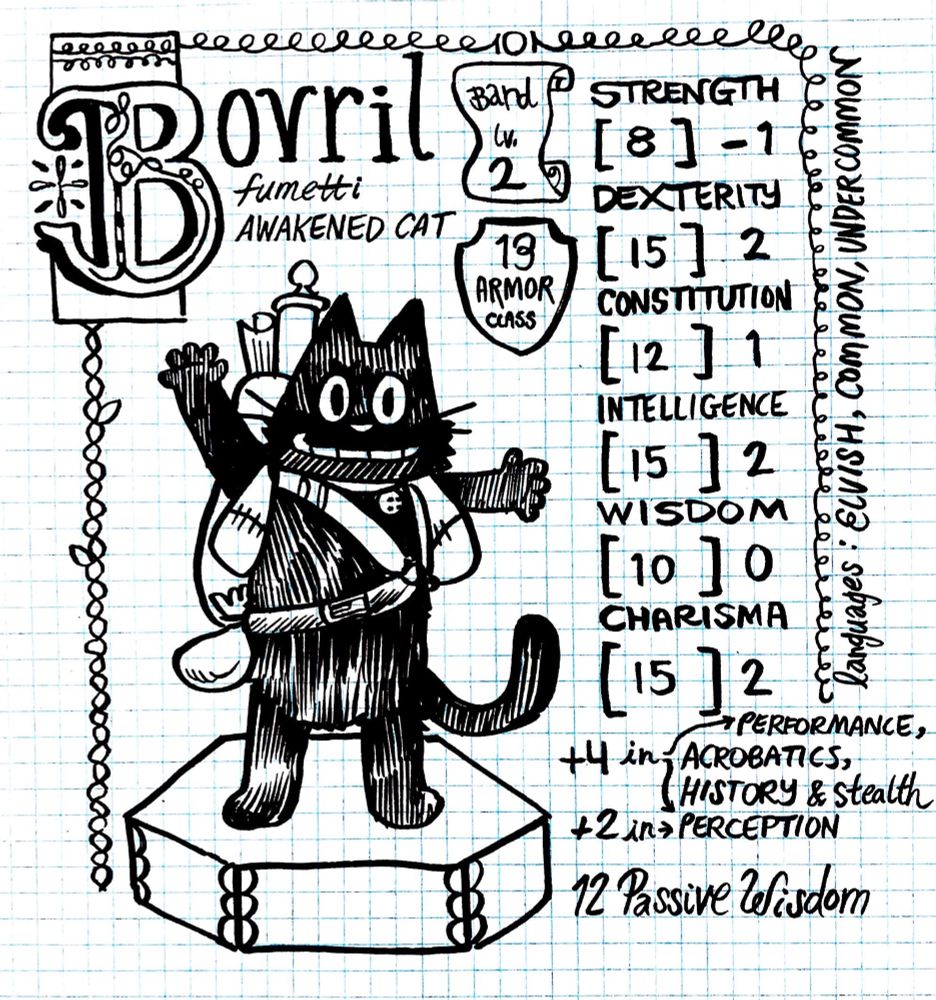 Bovril
fumetti
AWAKENED CAT
Bard
lv.
2
13
ARMOR
CLASS
STRENGTH
[8] -1
DEXTERITY
[15] 2
CONSTITUTION
[12] 1
INTELLIGENCE
[15] 2
WISDOM
[10] 0
CHARISMA
[15] 2
languages: ELVISH, COMMON, UNDERCOMMON
+4 in → PERFORMANCE,
ACROBATICS,
HISTORY & stealth
+2 in → PERCEPTION
12 Passive Wisdom